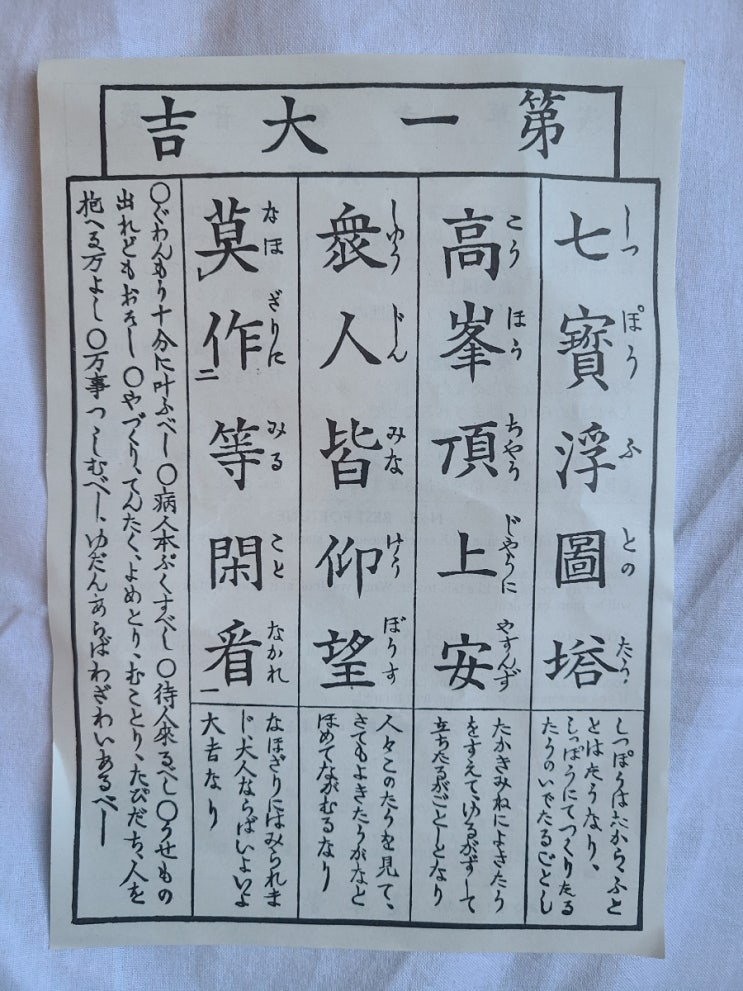 第一大吉
七寶浮圖塔
しつぽうふとのたう
しつぽうはたから、ふと
とはたうなり、
しつぽうにてつくりたる
たうのいでたるごとし
高峯頂上安
こうほうちやうじやうにやすんず
たかきみねによきたう
をすえて、ゆるがずして
立ちたるがごとしとなり
衆人皆仰望
しゆうじんみなげうぼうす
人々このたうを見て、
さてもよきたうかなと
ほめてながむるなり
莫レ作二等閑看一
なほざりにみることなかれ
なほざりにはみられま
じ、大人ならばいよいよ
大吉なり
○ぐわんもう十分に叶ふべし ○病人本ぷくすべし ○待人來るべし ○うせもの
出れどもおそし ○やづくり、てんたく、よめとり、むことり、たびだち、人を
抱へる万よし ○万事つゝしむべし、ゆだんあらばわざわいあるべし